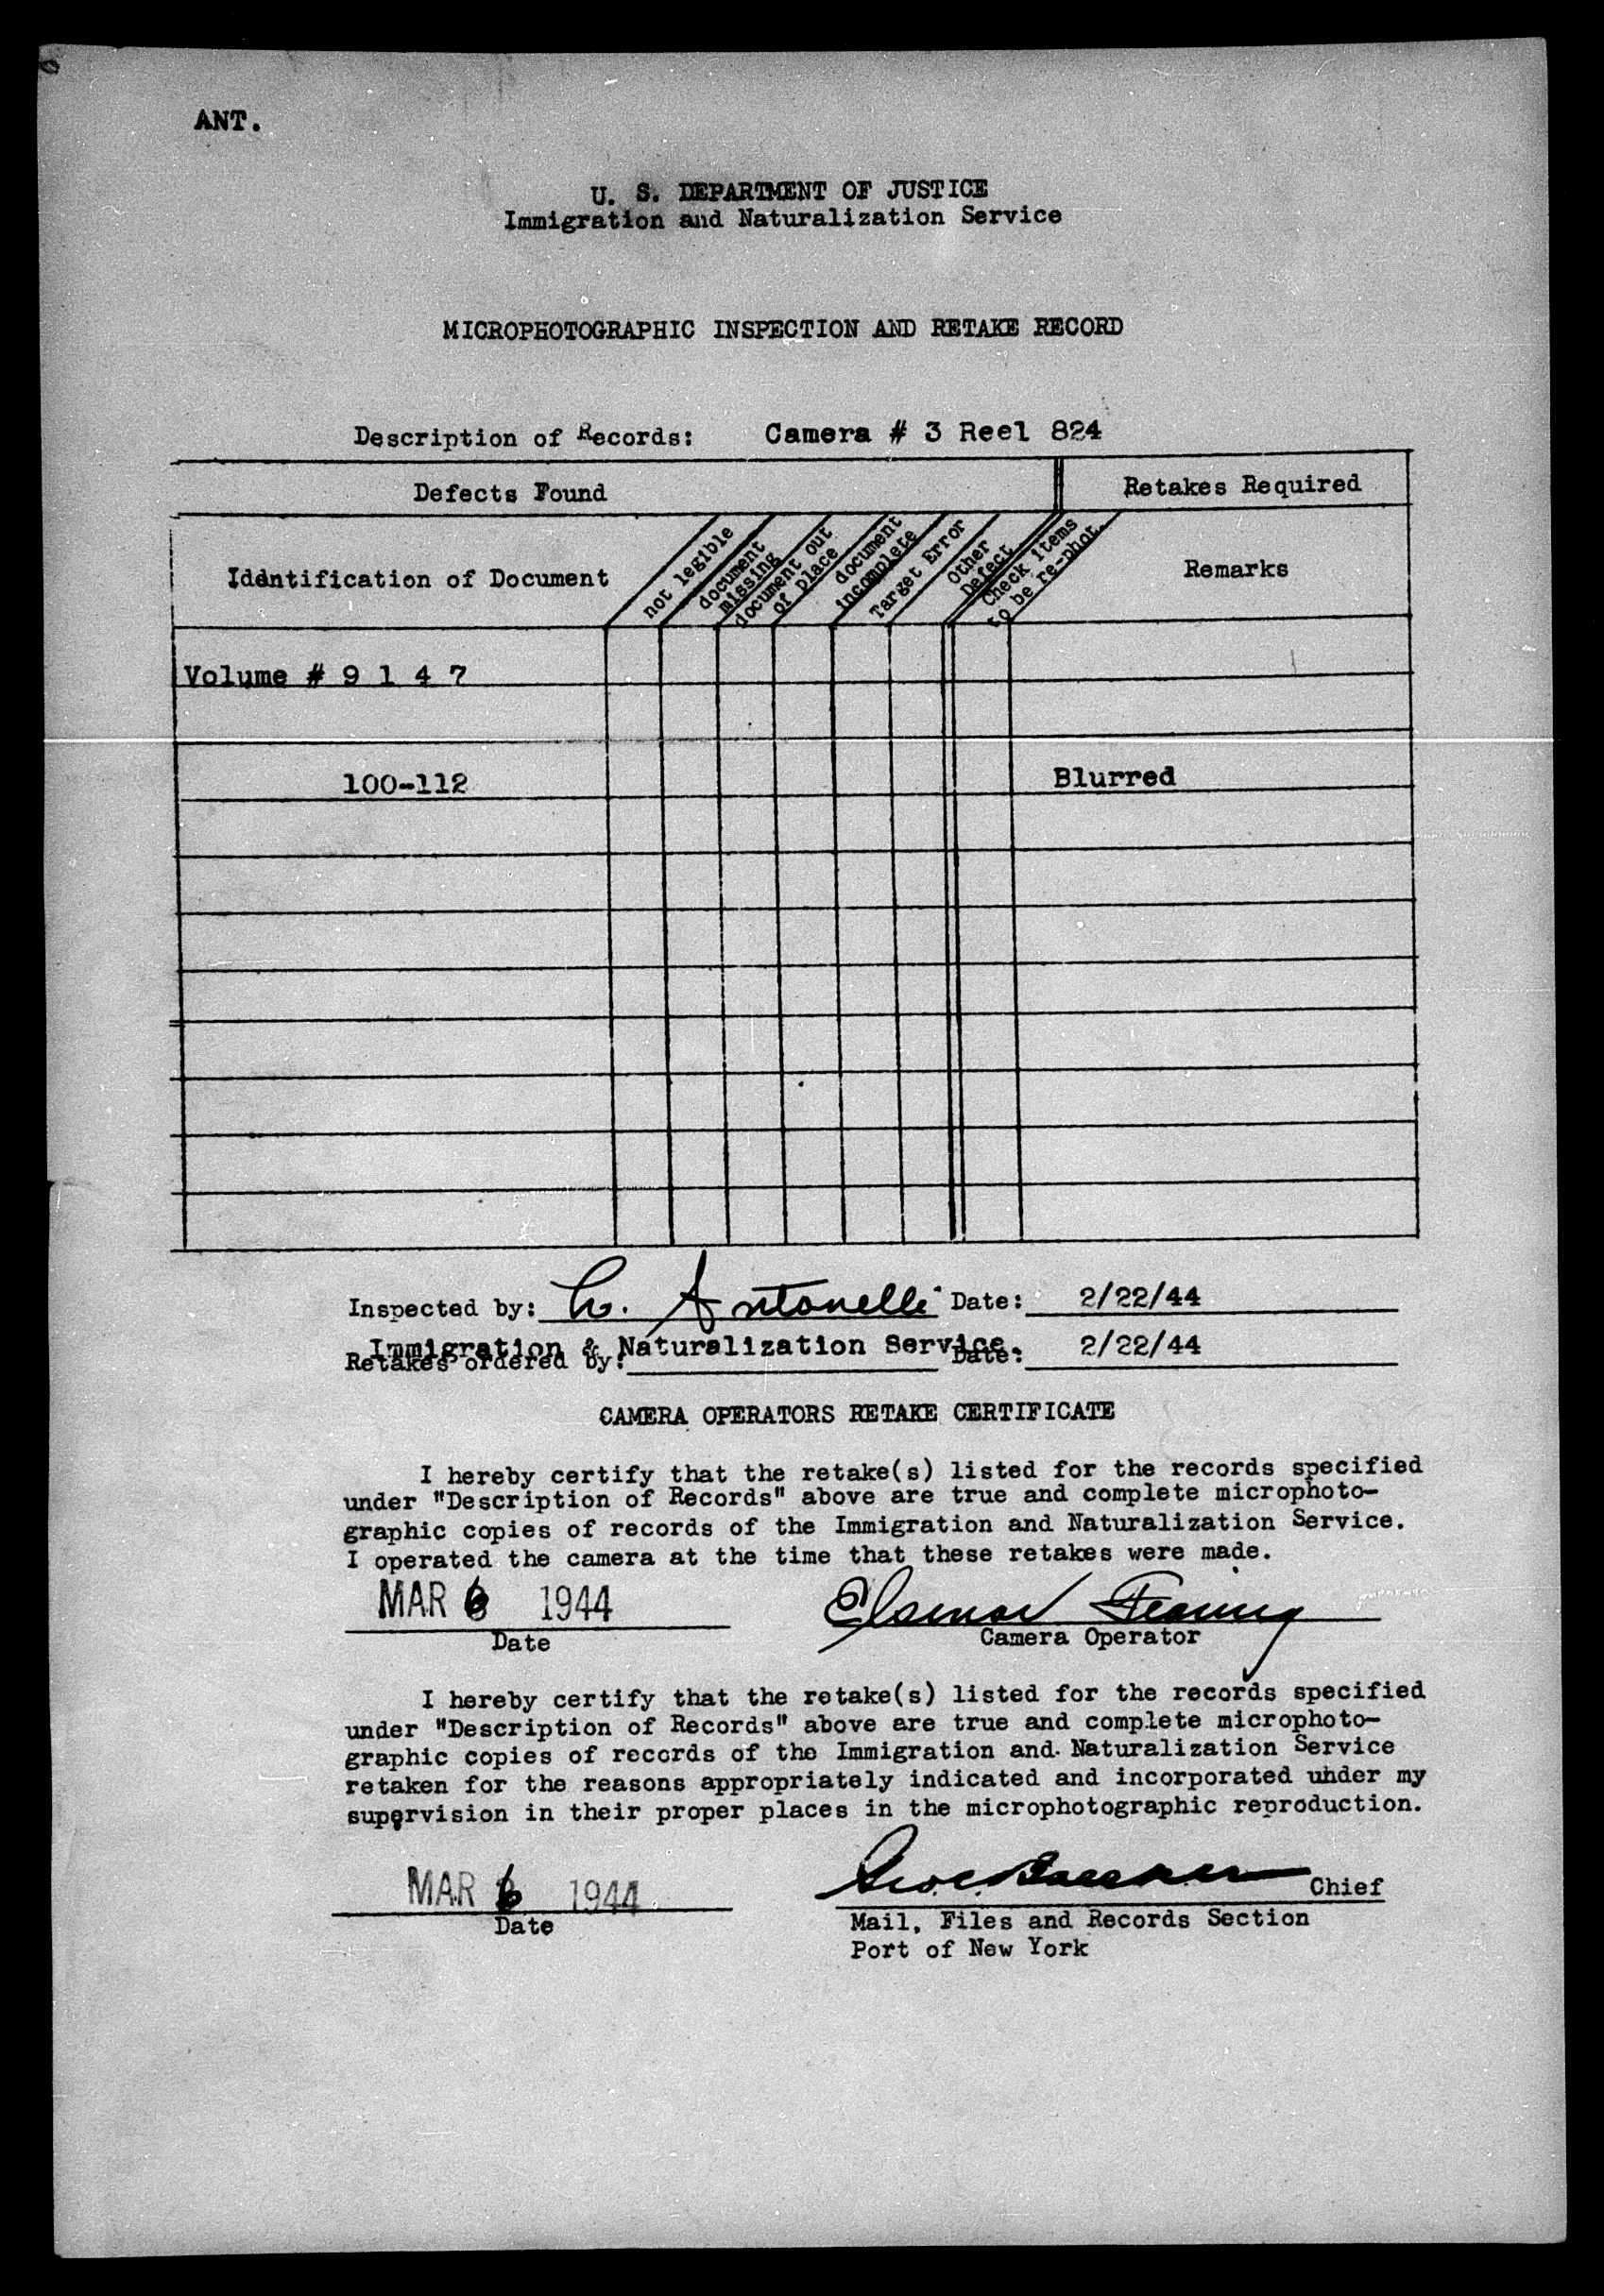 ANT.
U. S. DEPARTMENT OF JUSTICE
Immigration and Naturalization Service
MICROPHOTOGRAPHIC INSPECTION AND RETAKE RECORD
Description of Records: Camera # 3 Reel 824
Defects Found
Retakes Required
Identification of Document
not legible
document missing
document out of place
document incomplete
Target Error
Other Defect
Check items to be re-phot.
Remarks
Volume # 9 1 4 7
100-112 Blurred
Inspected by: Antonelli Date: 2/22/44
Immigration & Naturalization Service.
Retakes ordered by: Date: 2/22/44
CAMERA OPERATORS RETAKE CERTIFICATE
I hereby certify that the retake(s) listed for the records specified
under "Description of Records" above are true and complete microphoto-
graphic copies of records of the Immigration and Naturalization Service.
I operated the camera at the time that these retakes were made.
MAR 6 1944
Date
Camera Operator
I hereby certify that the retake(s) listed for the records specified
under "Description of Records" above are true and complete microphoto-
graphic copies of records of the Immigration and Naturalization Service
retaken for the reasons appropriately indicated and incorporated under my
supervision in their proper places in the microphotographic reproduction.
MAR 6 1944
Date
Chief
Mail, Files and Records Section
Port of New York